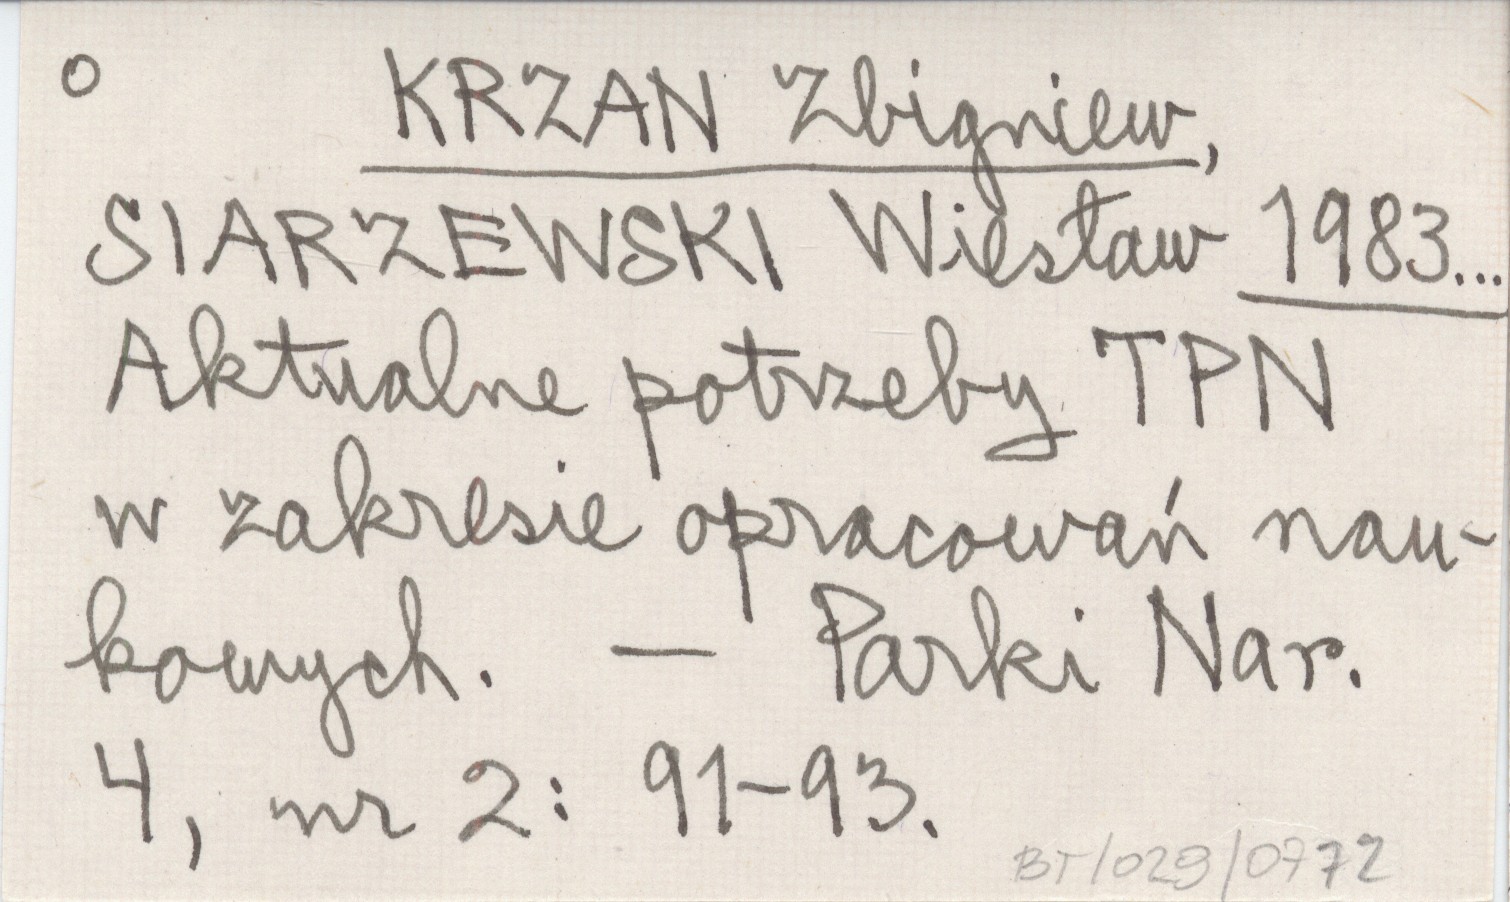 o KRZAN Zbigniew,
SIARZEWSKI Wiesław 1983...
Aktualne potrzeby TPN
w zakresie opracowań nau-
kowych. — Parki Nar.
4, nr 2: 91-93.
BT/029/0772